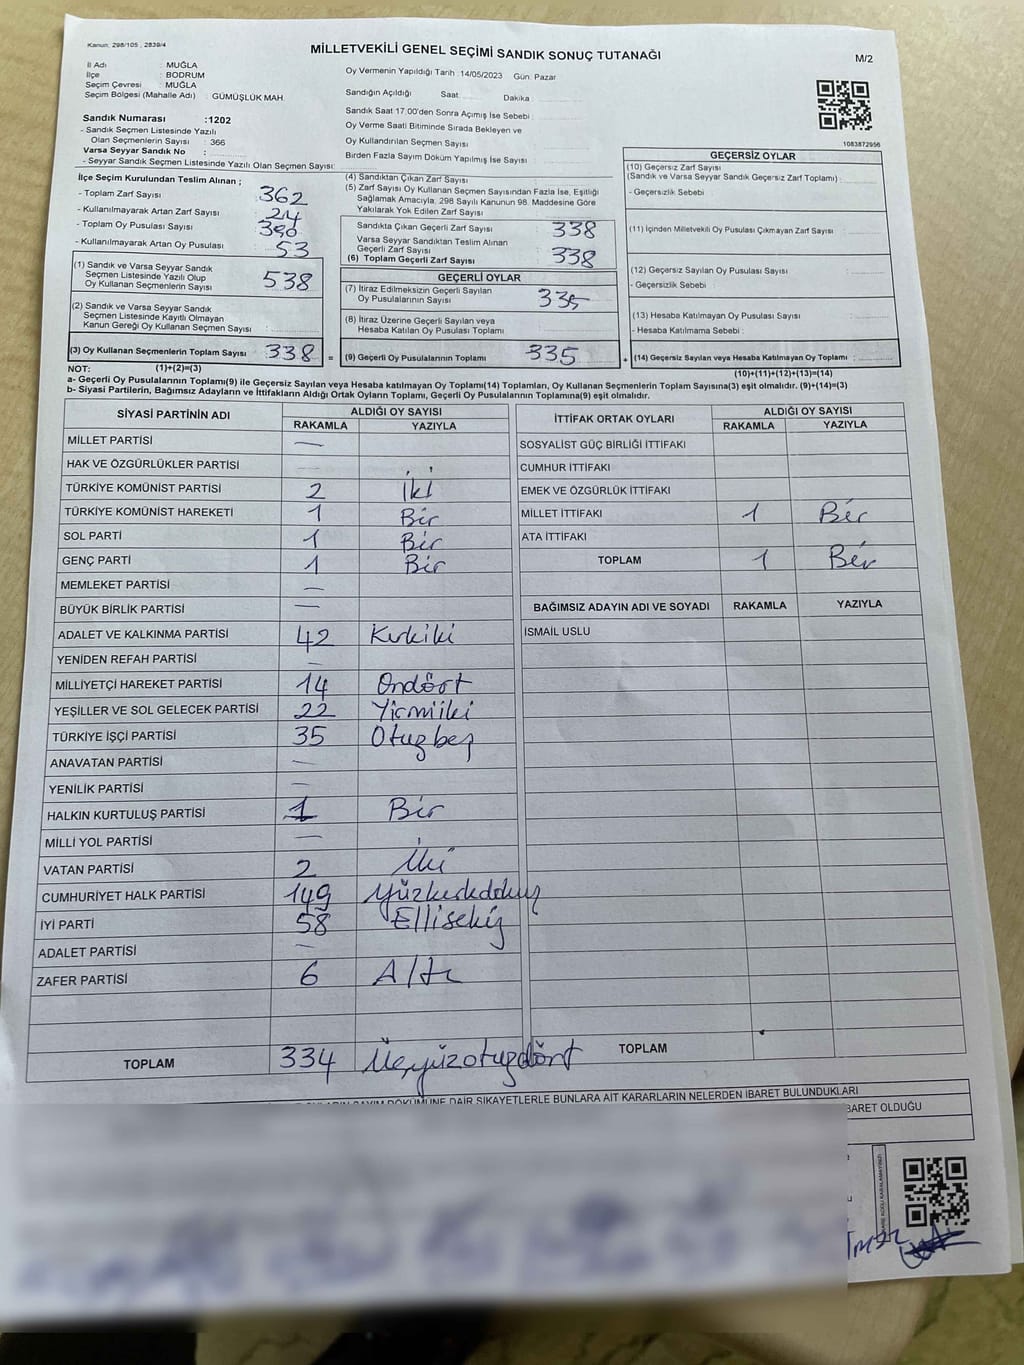 Kanun: 298/105 , 2839/4
MİLLETVEKİLİ GENEL SEÇİMİ SANDIK SONUÇ TUTANAĞI
M/2
İl Adı : MUĞLA
İlçe : BODRUM
Seçim Çevresi : MUĞLA
Seçim Bölgesi (Mahalle Adı) : GÜMÜŞLÜK MAH.
Sandık Numarası :1202
- Sandık Seçmen Listesinde Yazılı
Olan Seçmenlerin Sayısı : 366
Varsa Seyyar Sandık No :
- Seyyar Sandık Seçmen Listesinde Yazılı Olan Seçmen Sayısı:
Oy Vermenin Yapıldığı Tarih :14/05/2023 Gün: Pazar
Sandığın Açıldığı Saat: Dakika :
Sandık Saat 17:00'den Sonra Açımış İse Sebebi :
Oy Verme Saati Bitiminde Sırada Bekleyen ve
Oy Kullandırılan Seçmen Sayısı :
Birden Fazla Sayım Döküm Yapılmış İse Sayısı :
1083872956
İlçe Seçim Kurulundan Teslim Alınan ;
- Toplam Zarf Sayısı : 362
- Kullanılmayarak Artan Zarf Sayısı : 24
- Toplam Oy Pusulası Sayısı : 390
- Kullanılmayarak Artan Oy Pusulası : 53
(1) Sandık ve Varsa Seyyar Sandık
Seçmen Listesinde Yazılı Olup
Oy Kullanan Seçmenlerin Sayısı : 538
(2) Sandık ve Varsa Seyyar Sandık
Seçmen Listesinde Kayıtlı Olmayan
Kanun Gereği Oy Kullanan Seçmen Sayısı :
(3) Oy Kullanan Seçmenlerin Toplam Sayısı : 338 =
(4) Sandıktan Çıkan Zarf Sayısı :
(5) Zarf Sayısı Oy Kullanan Seçmen Sayısından Fazla İse, Eşitliği
Sağlamak Amacıyla, 298 Sayılı Kanunun 98. Maddesine Göre
Yakılarak Yok Edilen Zarf Sayısı :
Sandıkta Çıkan Geçerli Zarf Sayısı : 338
Varsa Seyyar Sandıktan Teslim Alınan
Geçerli Zarf Sayısı :
(6) Toplam Geçerli Zarf Sayısı : 338
GEÇERLİ OYLAR
(7) İtiraz Edilmeksizin Geçerli Sayılan
Oy Pusulalarının Sayısı : 335
(8) İtiraz Üzerine Geçerli Sayılan veya
Hesaba Katılan Oy Pusulası Toplamı :
(9) Geçerli Oy Pusulalarının Toplamı : 335 +
GEÇERSİZ OYLAR
(10) Geçersiz Zarf Sayısı
(Sandık ve Varsa Seyyar Sandık Geçersiz Zarf Toplamı) :
- Geçersizlik Sebebi :
(11) İçinden Milletvekili Oy Pusulası Çıkmayan Zarf Sayısı :
(12) Geçersiz Sayılan Oy Pusulası Sayısı :
- Geçersizlik Sebebi :
(13) Hesaba Katılmayan Oy Pusulası Sayısı :
- Hesaba Katılmama Sebebi :
(14) Geçersiz Sayılan veya Hesaba Katılmayan Oy Toplamı :
NOT: (1)+(2)=(3)
(10)+(11)+(12)+(13)=(14)
a- Geçerli Oy Pusulalarının Toplamı(9) ile Geçersiz Sayılan veya Hesaba katılmayan Oy Toplamı(14) Toplamları, Oy Kullanan Seçmenlerin Toplam Sayısına(3) eşit olmalıdır. (9)+(14)=(3)
b- Siyasi Partilerin, Bağımsız Adayların ve İttifakların Aldığı Ortak Oyların Toplamı, Geçerli Oy Pusulalarının Toplamına(9) eşit olmalıdır.
SİYASİ PARTİNİN ADI ALDIĞI OY SAYISI
RAKAMLA YAZIYLA
MİLLET PARTİSİ —
HAK VE ÖZGÜRLÜKLER PARTİSİ —
TÜRKİYE KOMÜNİST PARTİSİ 2 İki
TÜRKİYE KOMÜNİST HAREKETİ 1 Bir
SOL PARTİ 1 Bir
GENÇ PARTİ 1 Bir
MEMLEKET PARTİSİ —
BÜYÜK BİRLİK PARTİSİ —
ADALET VE KALKINMA PARTİSİ 42 Kırkiki
YENİDEN REFAH PARTİSİ —
MİLLİYETÇİ HAREKET PARTİSİ 14 Ondört
YEŞİLLER VE SOL GELECEK PARTİSİ 22 Yirmiiki
TÜRKİYE İŞÇİ PARTİSİ 35 Otuzbeş
ANAVATAN PARTİSİ —
YENİLİK PARTİSİ —
HALKIN KURTULUŞ PARTİSİ 1 Bir
MİLLİ YOL PARTİSİ —
VATAN PARTİSİ 2 İki
CUMHURİYET HALK PARTİSİ 149 Yüzkırkdokuz
İYİ PARTİ 58 Ellisekiz
ADALET PARTİSİ —
ZAFER PARTİSİ 6 Altı
TOPLAM 334 Üçyüzotuzdört
İTTİFAK ORTAK OYLARI ALDIĞI OY SAYISI
RAKAMLA YAZIYLA
SOSYALİST GÜÇ BİRLİĞİ İTTİFAKI
CUMHUR İTTİFAKI
EMEK VE ÖZGÜRLÜK İTTİFAKI
MİLLET İTTİFAKI 1 Bir
ATA İTTİFAKI
TOPLAM 1 Bir
BAĞIMSIZ ADAYIN ADI VE SOYADI RAKAMLA YAZIYLA
İSMAİL USLU
TOPLAM
DÖKÜMÜNE DAİR ŞİKAYETLERLE BUNLARA AİT KARARLARIN NELERDEN İBARET BULUNDUKLARI
BARET OLDUĞU